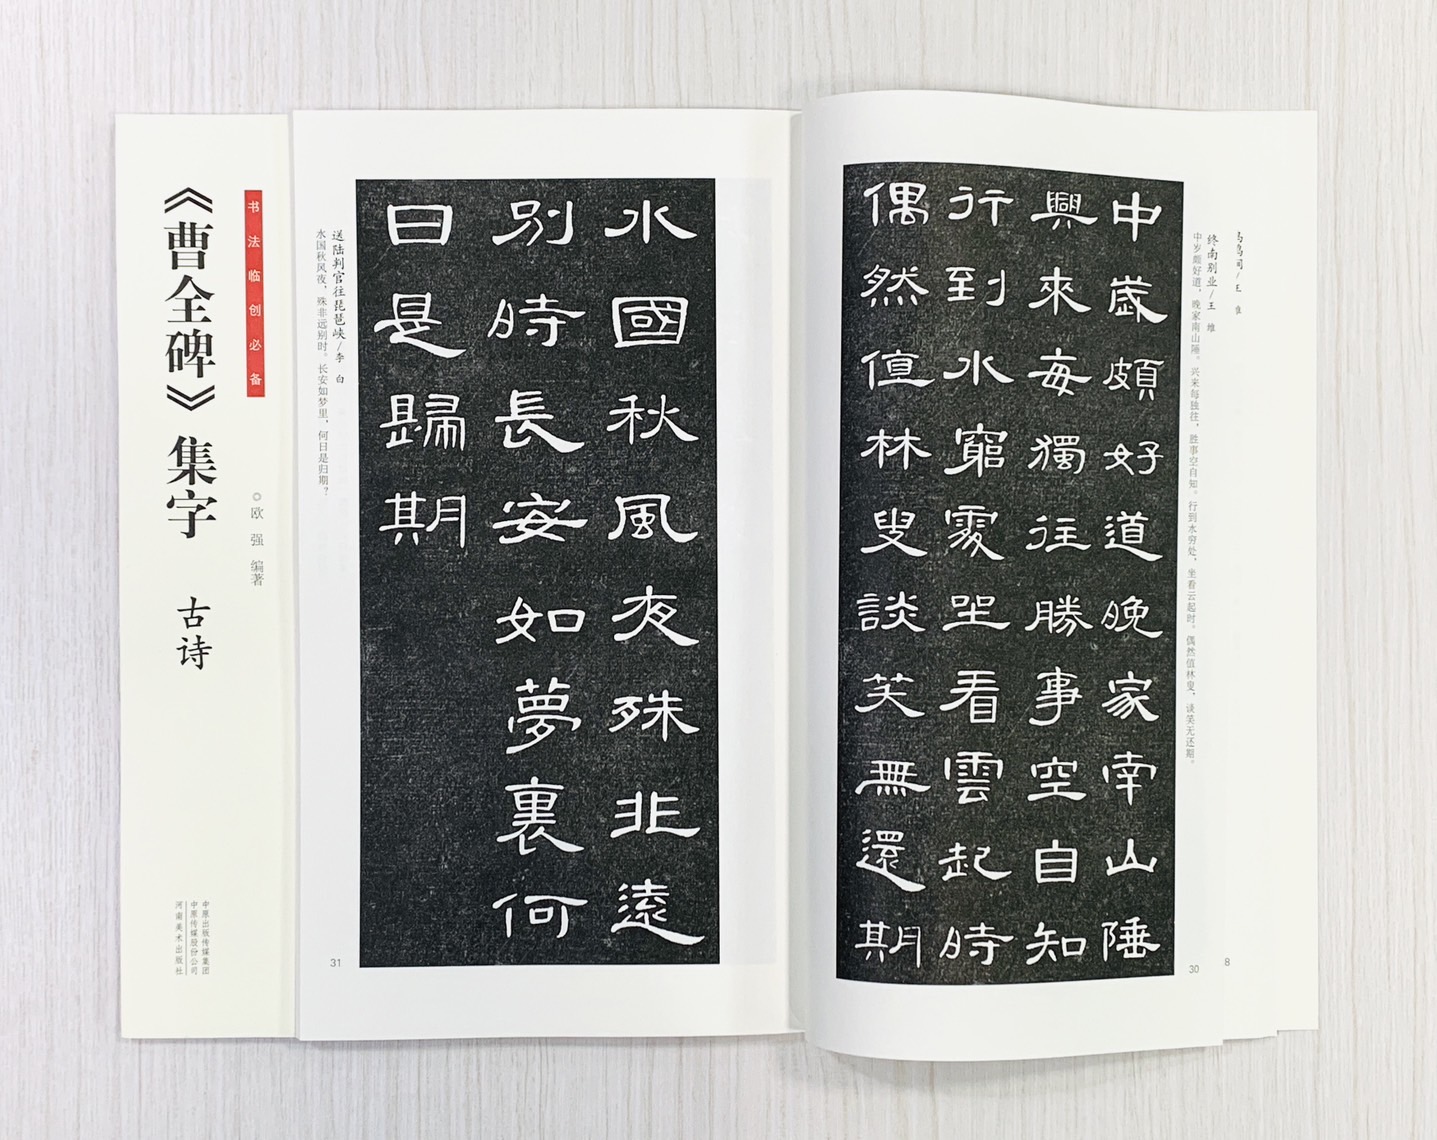 中歲頗好道晚家南山陲
興來每獨往勝事空自知
行到水窮處坐看雲起時
偶然值林叟談笑無還期
终南别业/王 维
中岁颇好道，晚家南山陲。兴来每独往，胜事空自知。行到水穷处，坐看云起时。偶然值林叟，谈笑无还期。
30
8
水國秋風夜殊非遠
別時長安如夢裏何
日是歸期
送陆判官往琵琶峡/李 白
水国秋风夜，殊非远别时。长安如梦里，何日是归期？
31
书法临创必备
《曹全碑》集字 古诗
◎欧 强 编著
中原出版传媒集团
中原传媒股份公司
河南美术出版社